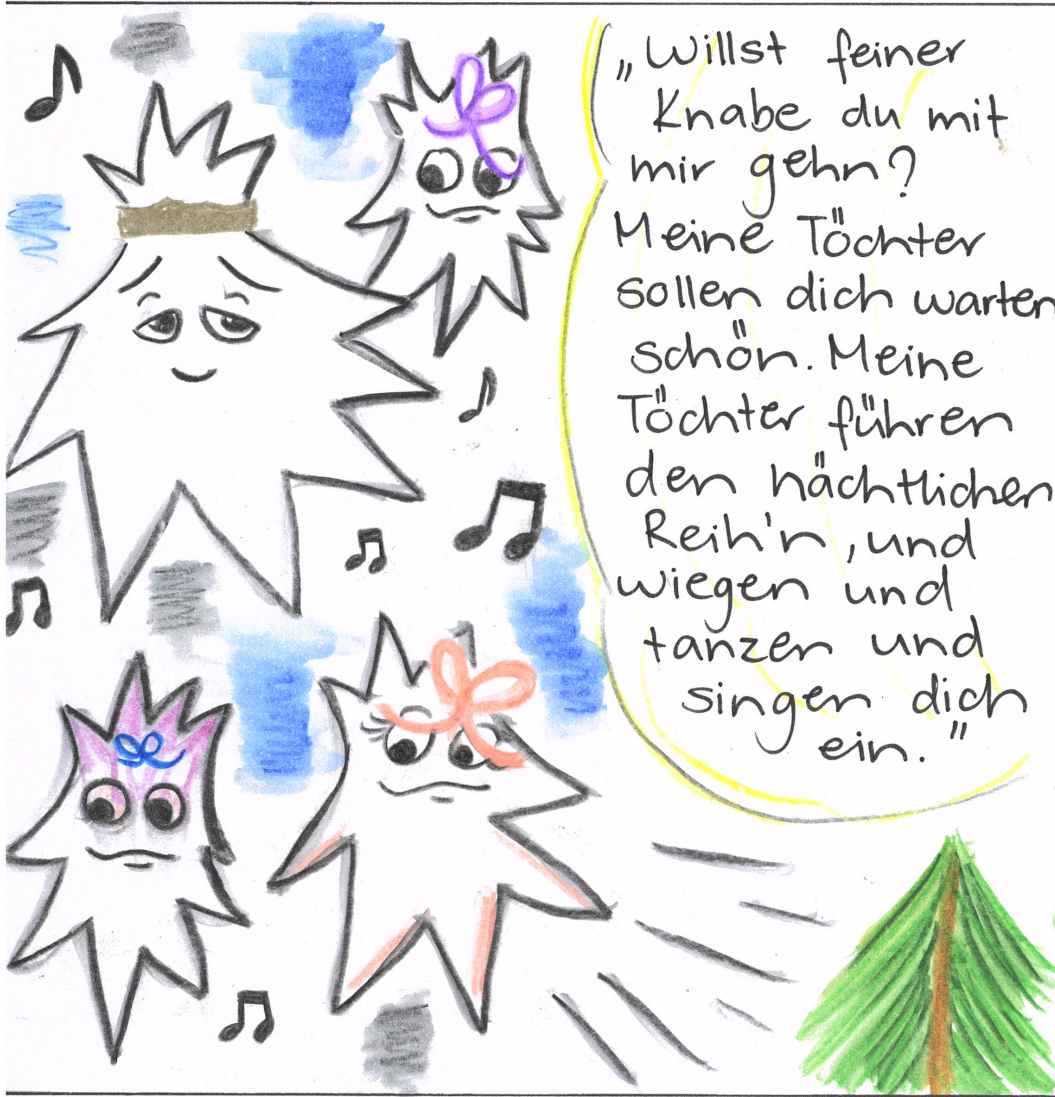 „Willst feiner
Knabe du mit
mir gehn?
Meine Töchter
sollen dich warten
schön. Meine
Töchter führen
den nächtlichen
Reih'n, und
wiegen und
tanzen und
singen dich
ein."